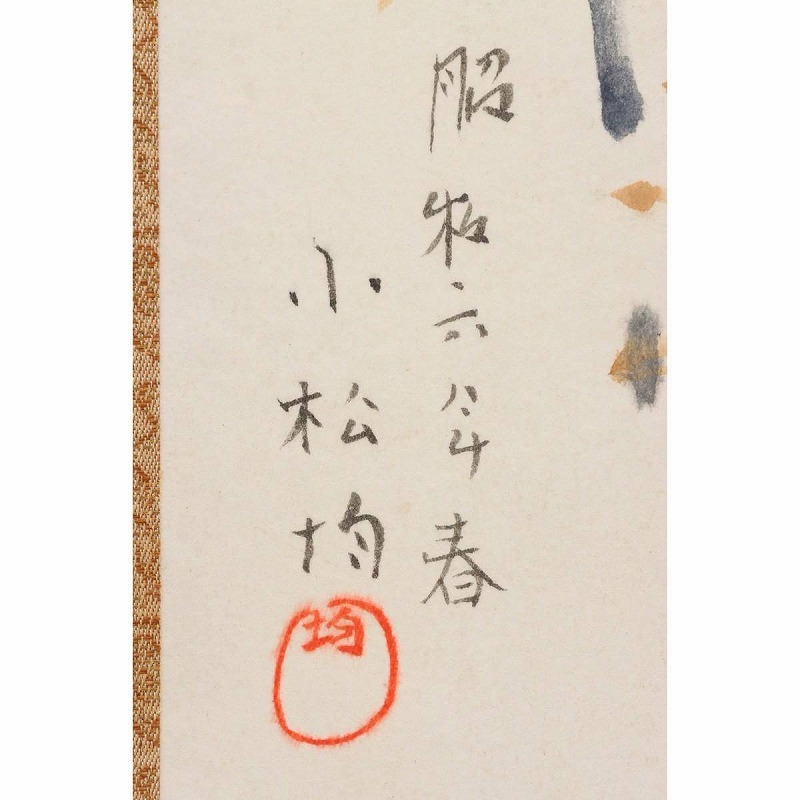 昭和六八年春
小松均
均